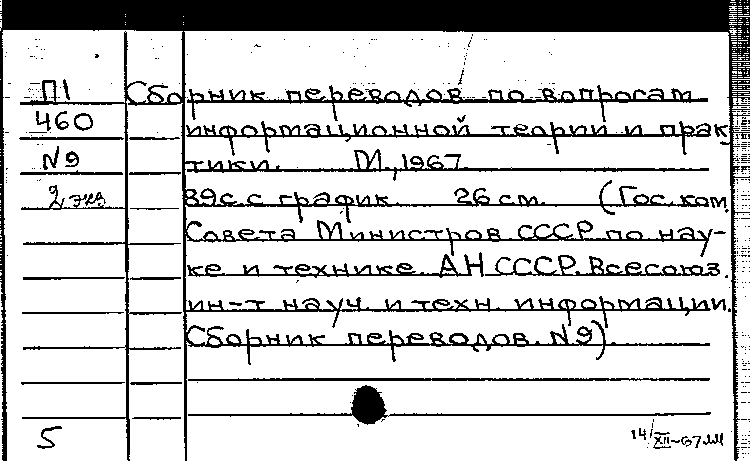 П1 Сборник переводов по вопросам
460 информационной теории и прак-
N9 тики. М., 1967.
2 экз 89с. с график. 26 см. (Гос. ком.
Совета Министров СССР по нау-
ке и технике. АН СССР. Всесоюз.
ин-т науч. и техн. информации.
Сборник переводов. N9).
5
14/XII-67